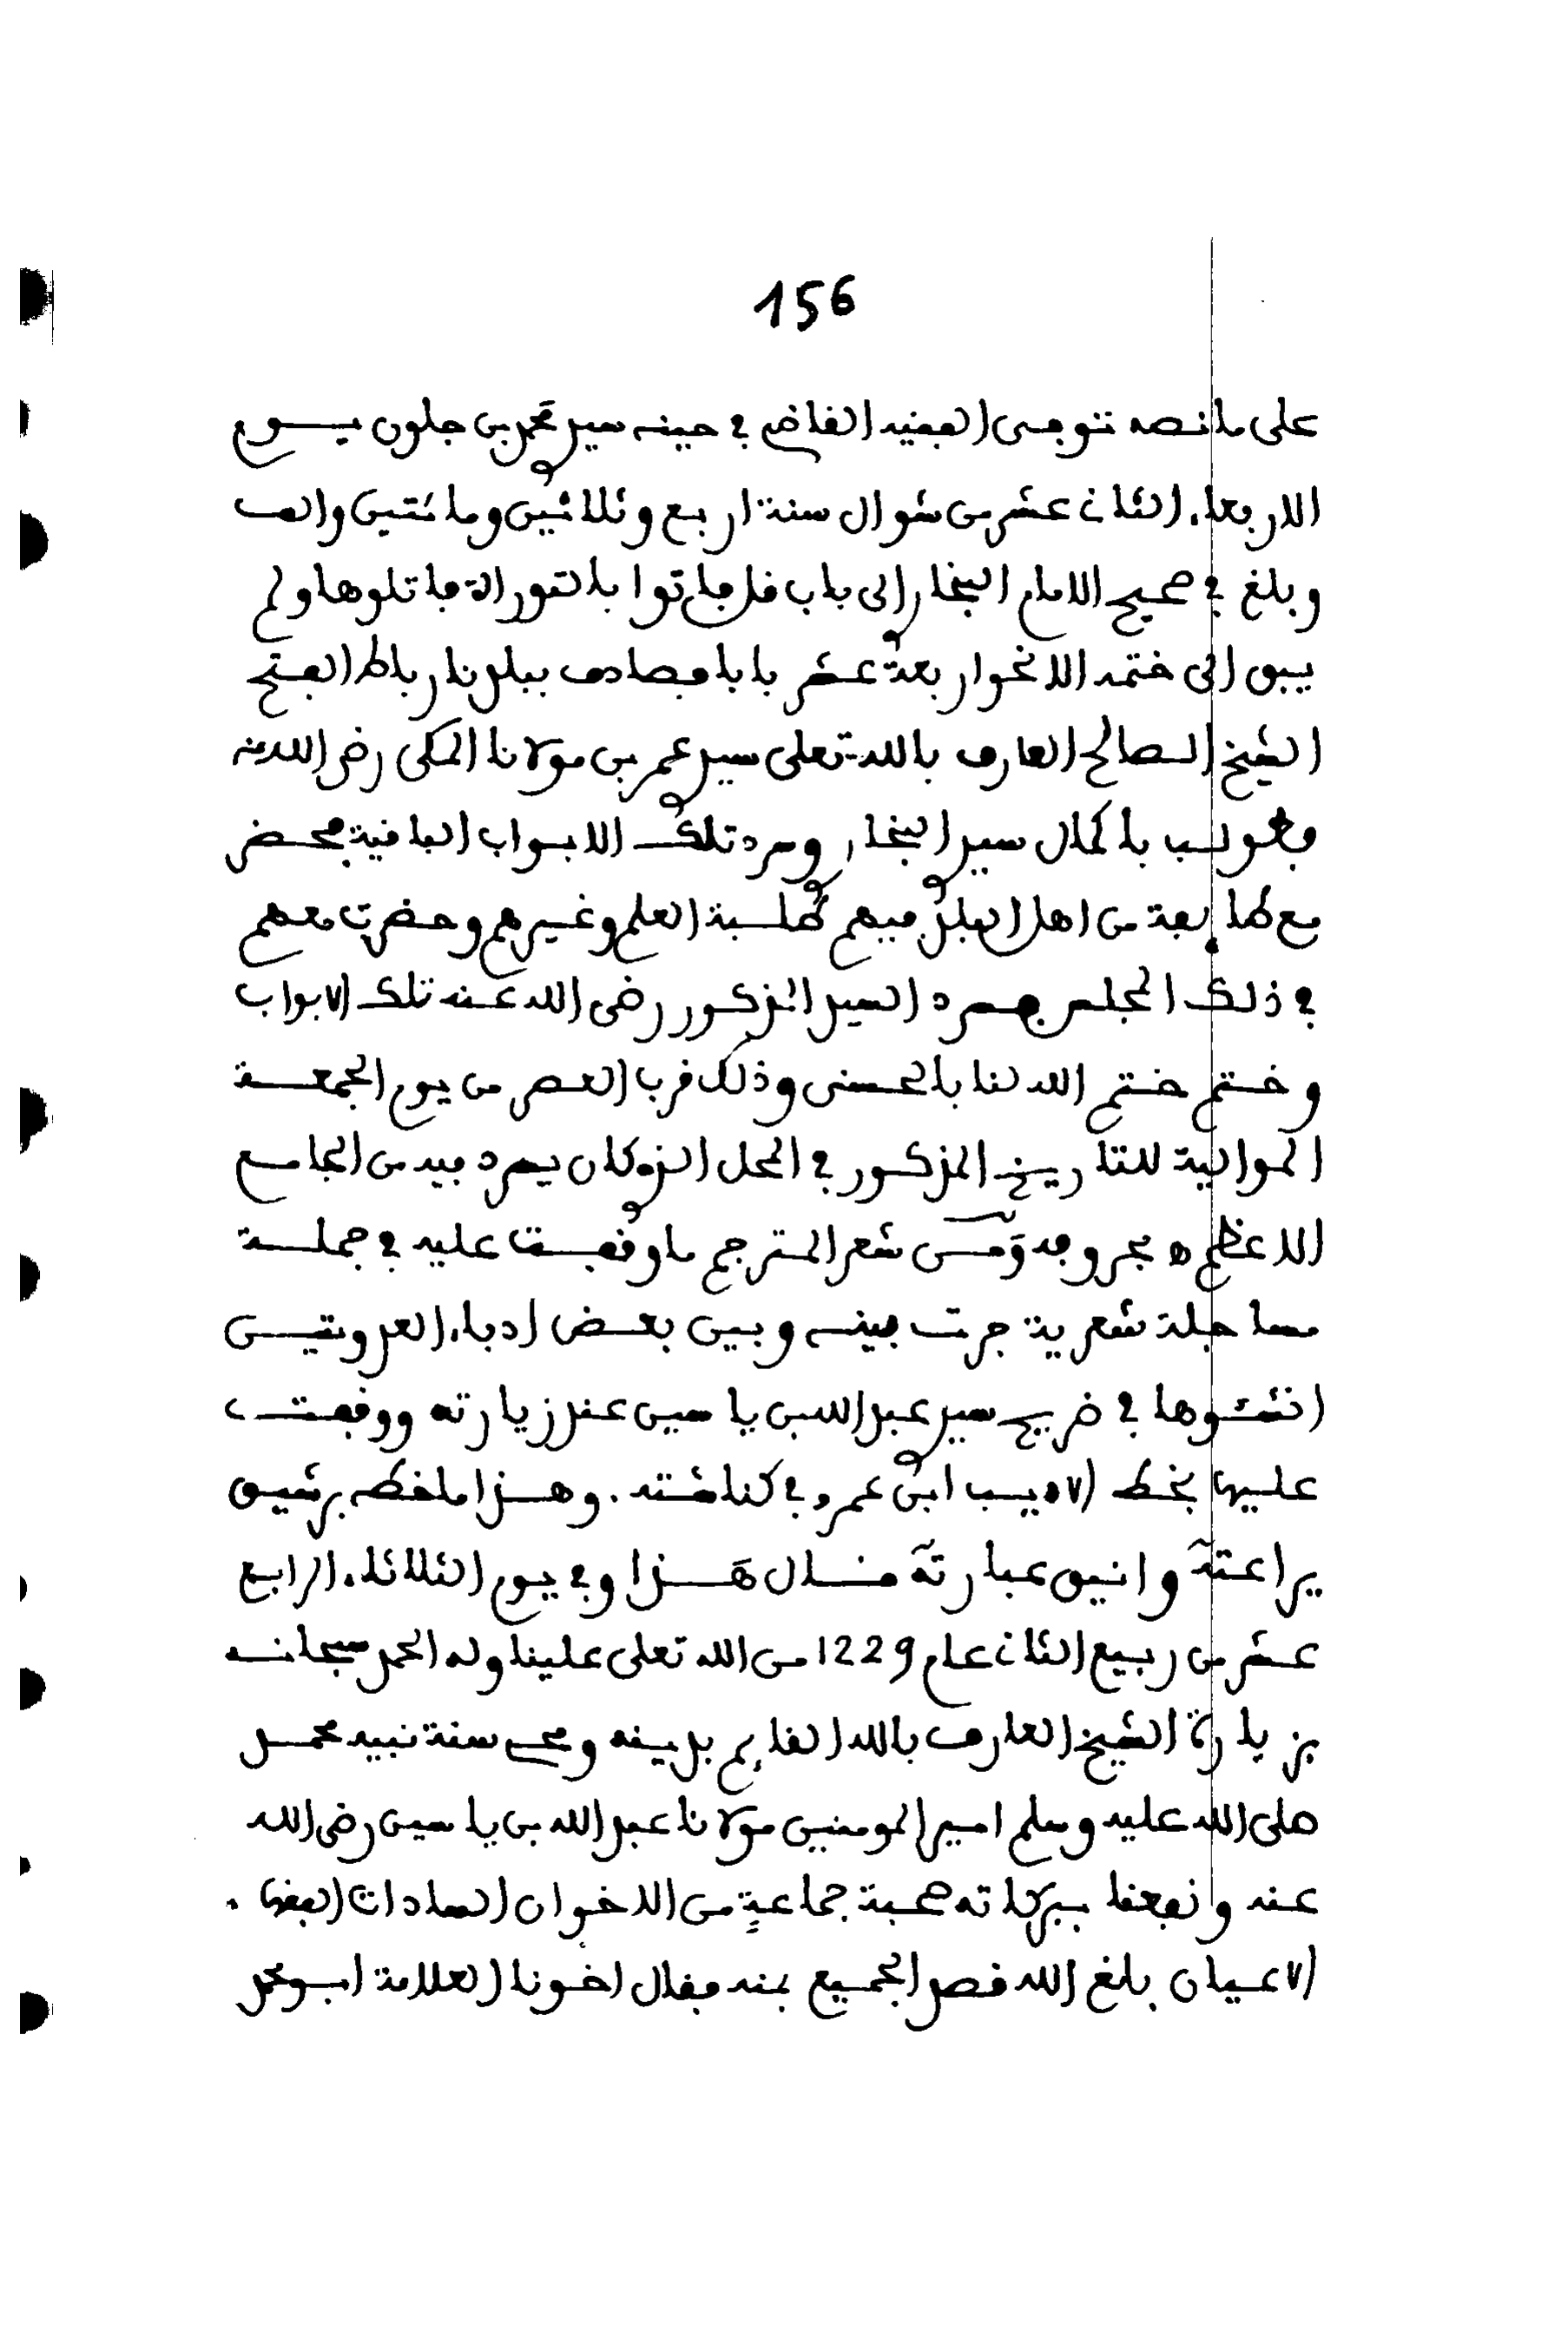 156
على ما نصه توفي الفقيه القاضي في حينه سيدي محمد بن جلون يـــوم
الاربعاء الثاني عشر من شوال سنة اربع وثلاثين ومائتين والف
وبلغ في صحيح الامام البخاري الى باب قل فاتوا بالتوراة فاتلوها ولم
يبق الى ختمه الا نحو اربعة عشر بابا فصادف ببلدنا رباط الفتح
الشيخ الصالح العارف بالله تعلى سيدي عمر بن مولانا المكي رضي الله عنه
فطولب باكمال سيدي البخاري وسرد تلك الابواب الباقية بمحضر
مع طائفة من اهل البلد فيهم طلبة العلم وغيرهم وحضرت معهم
في ذلك المجلس فسرد السيد المذكور رضي الله عنه تلك الابواب
وختم ختم الله لنا بالحسنى وذلك قرب العصر من يوم الجمعة
الموالية للتاريخ المذكور في المحل الذي كان يسرد فيه من الجامع
الاعظم ه بحروفه ومن شعر المترجم ما وقفت عليه في جملة
مساجلة شعرية جرت بينه وبين بعض ادباء العدوتين
انشئوها في ضريح سيدي عبد الله بن ياسين عند زيارته ووقفت
عليها بخط الاديب ابي عمرو في كناشته . وهذا ما خطه برشيق
يراعته وانيق عبارته قال هذا وفي يوم الثلاثاء الرابع
عشر من ربيع الثاني عام 1229 من الله تعلى علينا وله الحمد سبحانه
بزيارة الشيخ العارف بالله القايم بدينه ومحي سنة نبيه محمد
صلى الله عليه وسلم امير المومنين مولانا عبد الله بن ياسين رضي الله
عنه ونفعنا ببركاته صحبة جماعة من الاخوان السادات الفقهاء
الاعيان بلغ الله قصد الجميع بمنه فقال اخونا العلامة ابو محمد